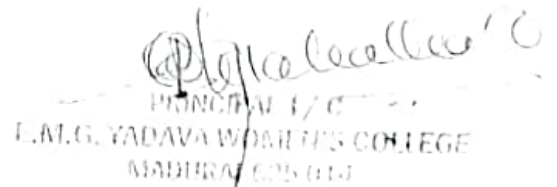 PRINCIPAL I/C
E.M.G. YADAVA WOMEN'S COLLEGE
MADURAI 625 014